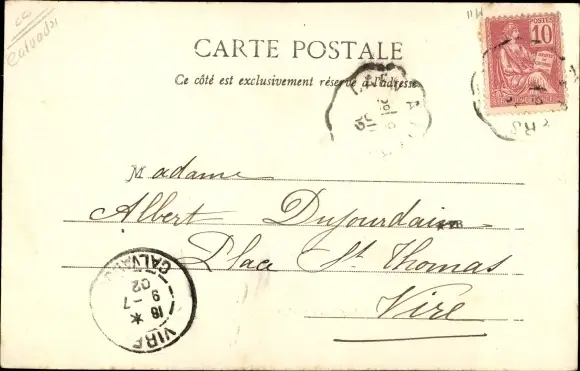 cc
Calvados
CARTE POSTALE
Ce côté est exclusivement réservé à l'adresse
POSTES
10
Madame
Albert Dujourdain
Place St Thomas
Vire
VIRE
18 - 7
9
02
CALVA